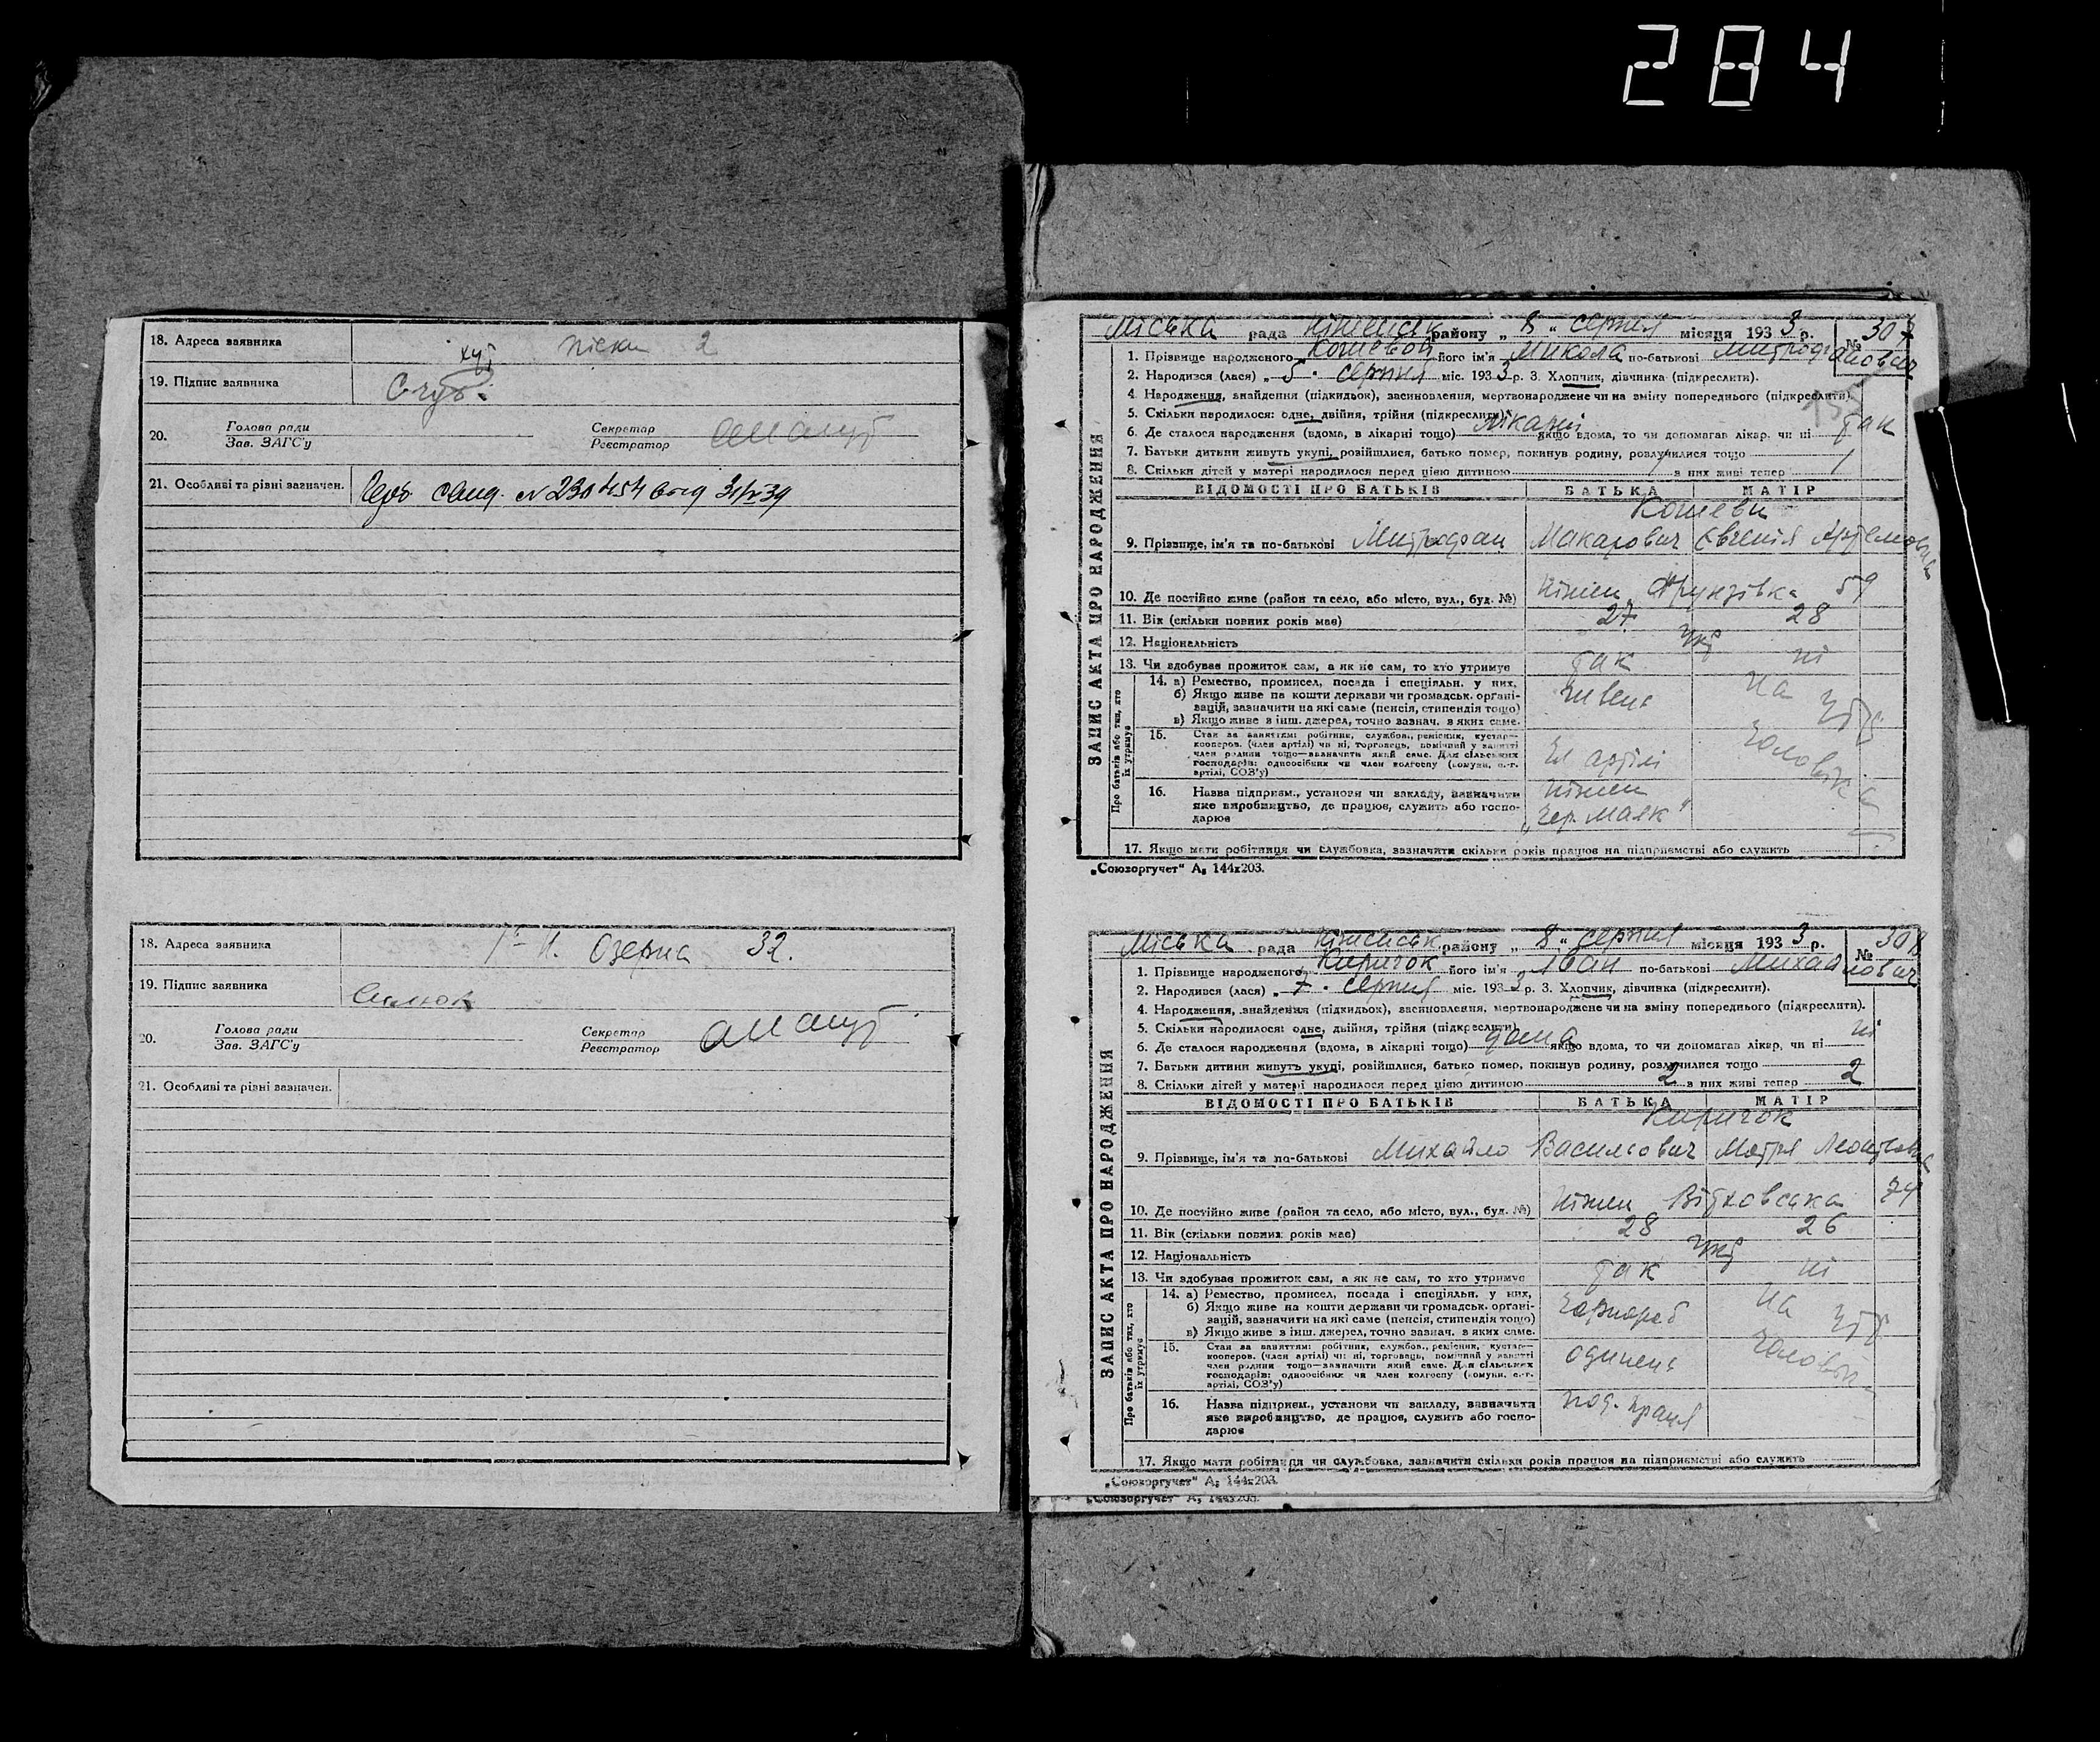 284
18. Адреса заявника хут Піски 2
19. Підпис заявника
20. Голова ради Секретар
Зав. ЗАГС'у Реєстратор
21. Особливі та різні зазначен. № 230454
18. Адреса заявника Озерна 32.
19. Підпис заявника
20. Голова ради Секретар
Зав. ЗАГС'у Реєстратор
21. Особливі та різні зазначен.
ЗАПИС АКТА ПРО НАРОДЖЕННЯ
Міська рада Ніженськ району „ 8 “ серпня місяця 1933 р. № 307
1. Прізвище народженого Кошевой його ім'я Микола по-батькові Митрофанович
2. Народився (лася) „ 5 “ серпня міс. 1933 р. 3. Хлопчик, дівчинка (підкреслити).
4. Народження, знайдення (підкидьок), засиновлення, мертвонароджене чи на зміну попереднього (підкреслити).
5. Скільки народилося: одне, двійня, трійня (підкреслити).
6. Де сталося народження (вдома, в лікарні тощо) лікарні якщо вдома, то чи допомагав лікар, чи ні так
7. Батьки дитини живуть укупі, розійшлися, батько помер, покинув родину, розлучилися тощо
8. Скільки дітей у матері народилося перед цією дитиною 1 з них живі тепер 1
ВІДОМОСТІ ПРО БАТЬКІВ БАТЬКА МАТІР
Кошеви
9. Прізвище, ім'я та по-батькові Митрофан Макарович Євгенія Артемовна
10. Де постійно живе (район та село, або місто, вул., буд. №) Ніжен Фрунзівка 59
11. Вік (скільки повних років має) 27 28
12. Національність Укр
13. Чи здобуває прожиток сам, а як не сам, то хто утримує так ні
Про батьків або тих, хто їх утримує
14. а) Ремество, промисел, посада і спеціяльн. у них, швець на утр
б) Якщо живе на кошти держави чи громадськ. органі-
зацій, зазначити на які саме (пенсія, стипендія тощо)
в) Якщо живе з інш. джерел, точно зазнач. з яких саме.
15. Стан за заняттям: робітник, службов., ремісник, кустар—
кооперов. (член артілі) чи ні, торговець, помічний у занятті
член родини тощо—зазначити який саме. Для сільських
господарів: одноосібник чи член колгоспу (комуни, с.-г.
артілі, СОЗ'у) чл артілі чоловіка
16. Назва підприєм., установи чи закладу, зазначити
яке виробництво, де працює, служить або госпо-
дарює Ніжен „Чер. Маяк“
17. Якщо мати робітниця чи службовка, зазначити скільки років працює на підприємстві або служить
„Союзоргучет“ А₅ 144х203.
ЗАПИС АКТА ПРО НАРОДЖЕННЯ
Міська рада Ніженськ району „ 8 “ серпня місяця 1933 р. № 308
1. Прізвище народженого Киричок його ім'я Іван по-батькові Михайлович
2. Народився (лася) „ 7 “ серпня міс. 1933 р. 3. Хлопчик, дівчинка (підкреслити).
4. Народження, знайдення (підкидьок), засиновлення, мертвонароджене чи на зміну попереднього (підкреслити).
5. Скільки народилося: одне, двійня, трійня (підкреслити).
6. Де сталося народження (вдома, в лікарні тощо) дома якщо вдома, то чи допомагав лікар, чи ні ні
7. Батьки дитини живуть укупі, розійшлися, батько помер, покинув родину, розлучилися тощо
8. Скільки дітей у матері народилося перед цією дитиною 2 з них живі тепер 2
ВІДОМОСТІ ПРО БАТЬКІВ БАТЬКА МАТІР
Киричок
9. Прізвище, ім'я та по-батькові Михайло Васильович Мотря
10. Де постійно живе (район та село, або місто, вул., буд. №) Ніжен 74
11. Вік (скільки повних років має) 28 26
12. Національність Укр
13. Чи здобуває прожиток сам, а як не сам, то хто утримує так ні
Про батьків або тих, хто їх утримує
14. а) Ремество, промисел, посада і спеціяльн. у них, чорнороб на утр
б) Якщо живе на кошти держави чи громадськ. органі-
зацій, зазначити на які саме (пенсія, стипендія тощо)
в) Якщо живе з інш. джерел, точно зазнач. з яких саме.
15. Стан за заняттям: робітник, службов., ремісник, кустар—
кооперов. (член артілі) чи ні, торговець, помічний у занятті
член родини тощо—зазначити який саме. Для сільських
господарів: одноосібник чи член колгоспу (комуни, с.-г.
артілі, СОЗ'у) одинець
16. Назва підприєм., установи чи закладу, зазначити
яке виробництво, де працює, служить або госпо-
дарює под. праця
17. Якщо мати робітниця чи службовка, зазначити скільки років працює на підприємстві або служить
„Союзоргучет“ А₅ 144х203.
„Союзоргучет“ А₅ 144х203.